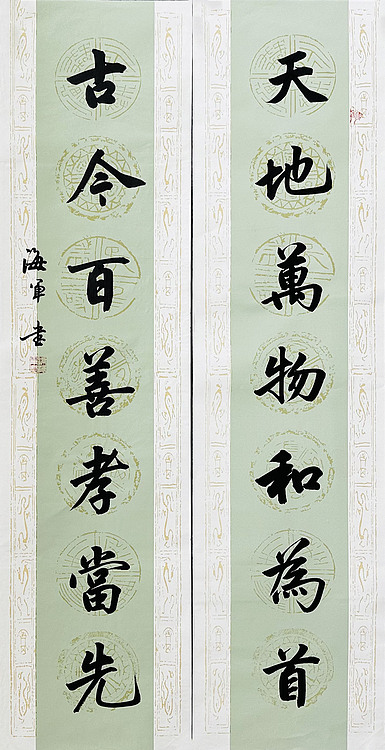 天地萬物和為首
古今百善孝當先
海軍書